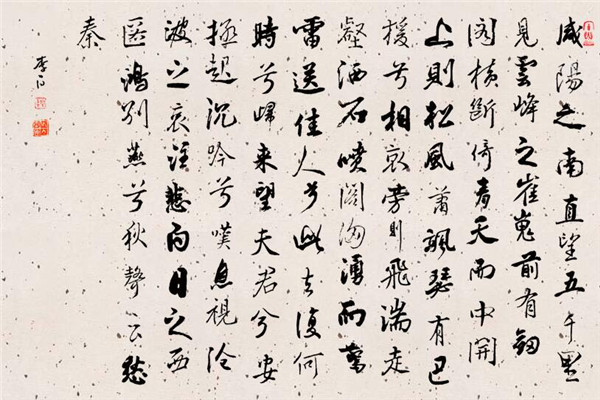 咸陽之南直望五千里
見雲峰之崔嵬前有劔
閣橫斷倚青天而中開
上則松風蕭颯瑟有巴
援兮相哀旁則飛湍走
壑洒石噴閣洶湧而驚
雷送佳人兮此去復何
時兮歸来望夫君兮安
極起沉吟兮嘆息視滄
波之注悲白日之西
匿鴻別燕兮秋聲云愁
秦
李白